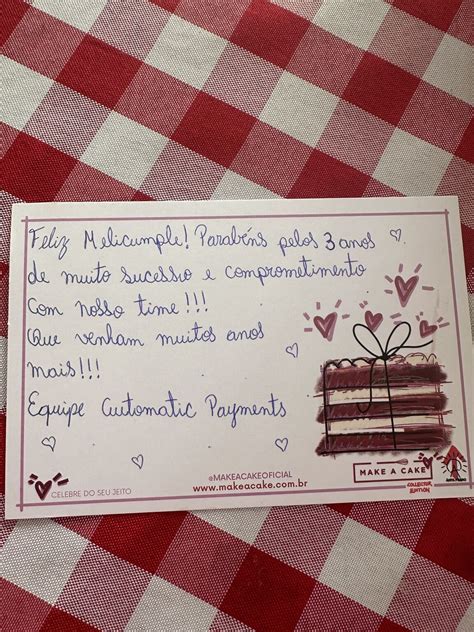 Feliz Melicumple! Parabéns pelos 3 anos
de muito sucesso e comprometimento
com nosso time!!!
Que venham muitos anos
mais!!!
Equipe Automatic Payments
MAKE A CAKE
COLLECTOR EDITION
@MAKEACAKEOFICIAL
www.makeacake.com.br
CELEBRE DO SEU JEITO